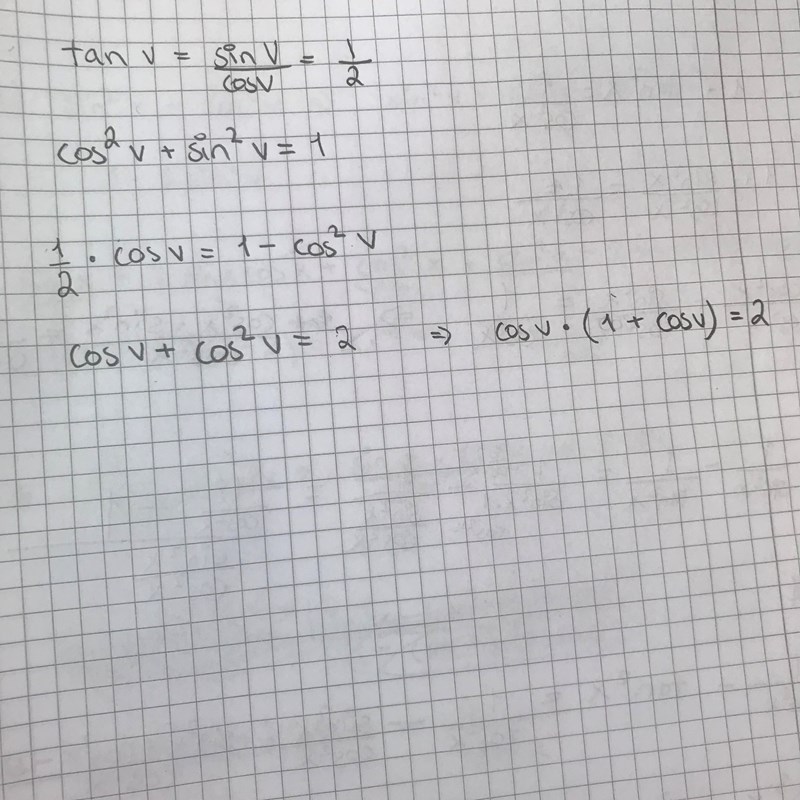 tan v = sin v / cos v = 1/2
cos² v + sin² v = 1
1/2 · cos v = 1 - cos² v
cos v + cos² v = 2 ⇒ cos v · (1 + cos v) = 2